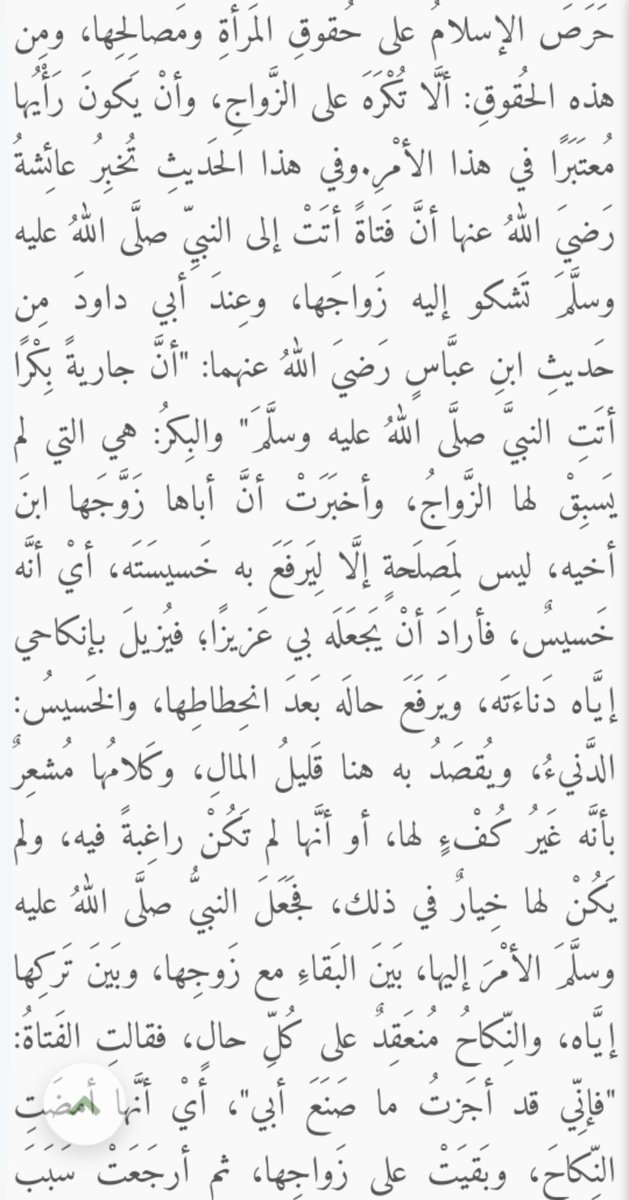 حَرَصَ الإسلامُ على حُقوقِ المَرأةِ ومَصالِحِها، ومِن
هذه الحُقوقِ: ألَّا تُكْرَهَ على الزَّواجِ، وأنْ يَكونَ رَأْيُها
مُعتَبَرًا في هذا الأمْرِ.وفي هذا الحَديثِ تُخبِرُ عائِشةُ
رَضيَ اللهُ عنها أنَّ فَتاةً أتَتْ إلى النبيِّ صلَّى اللهُ عليه
وسلَّمَ تَشكو إليه زَواجَها، وعِندَ أبي داودَ مِن
حَديثِ ابنِ عبَّاسٍ رَضيَ اللهُ عنهما: "أنَّ جاريةً بِكْرًا
أتَتِ النبيَّ صلَّى اللهُ عليه وسلَّمَ" والبِكرُ: هي التي لم
يَسبِقْ لها الزَّواجُ، وأخبَرَتْ أنَّ أباها زَوَّجَها ابنَ
أخيه، ليس لِمَصلَحةٍ إلَّا لِيَرفَعَ به خَسيسَتَه، أيْ أنَّه
خَسيسٌ، فأرادَ أنْ يَجعَلَه بي عَزيزًا؛ فيُزيلَ بإنكاحي
إيَّاه دَناءَتَه، ويَرفَعَ حالَه بَعدَ انحِطاطِها، والخَسيسُ:
الدَّنيءُ، ويُقصَدُ به هنا قَليلُ المالِ، وكَلامُها مُشعِرٌ
بأنَّه غَيرُ كُفْءٍ لها، أو أنَّها لم تَكُنْ راغِبةً فيه، ولم
يَكُنْ لها خِيارٌ في ذلك، فجَعَلَ النبيُّ صلَّى اللهُ عليه
وسلَّمَ الأمْرَ إليها، بَينَ البَقاءِ مع زَوجِها، وبَينَ تَركِها
إيَّاه، والنِّكاحُ مُنعَقِدٌ على كُلِّ حالٍ، فقالتِ الفَتاةُ:
"فإنِّي قد أجَزتُ ما صَنَعَ أبي"، أيْ أنَّها أمضَتِ
النِّكاحَ، وبَقيَتْ على زَواجِها، ثم أرجَعَتْ سَبَبَ